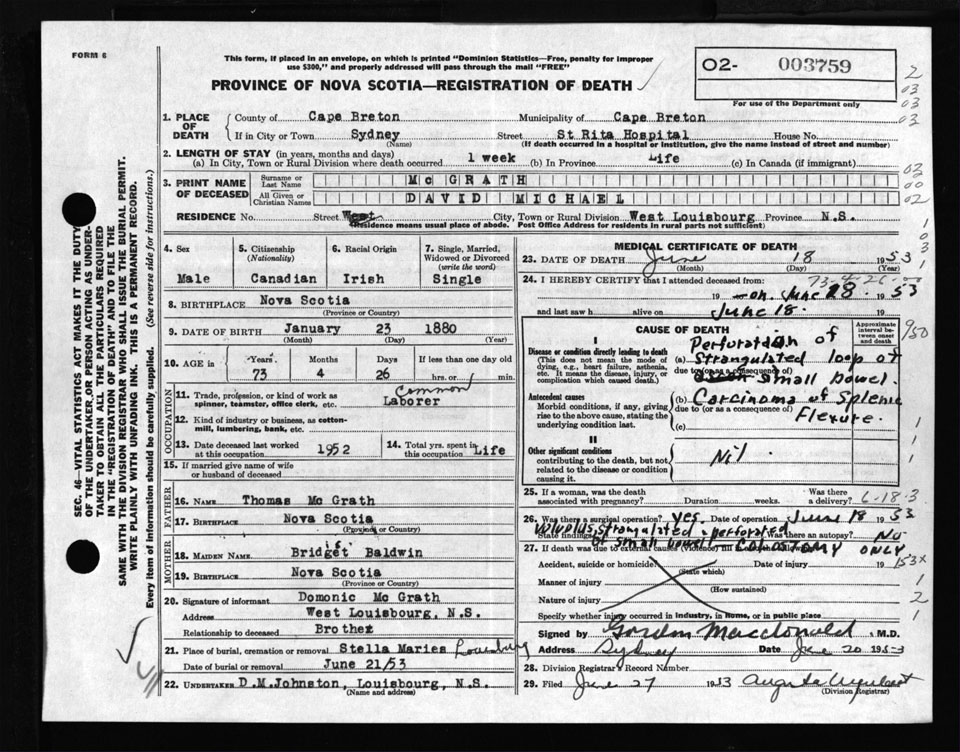 FORM 6
This form, if placed in an envelope, on which is printed "Dominion Statistics—Free, penalty for improper
use $300," and properly addressed will pass through the mail "FREE"
PROVINCE OF NOVA SCOTIA—REGISTRATION OF DEATH
02- 003759
For use of the Department only
2
03
03
03
1. PLACE OF DEATH
County of Cape Breton Municipality of Cape Breton
If in City or Town Sydney Street St Rita Hospital House No.
(Name) (If death occurred in a hospital or institution, give the name instead of street and number)
2. LENGTH OF STAY (in years, months and days)
(a) In City, Town or Rural Division where death occurred 1 week (b) In Province Life (c) In Canada (if immigrant)
3. PRINT NAME OF DECEASED
Surname or Last Name Mc GRATH
All Given or Christian Names DAVID MICHAEL
03
00
02
RESIDENCE No. Street West City, Town or Rural Division West Louisbourg Province N.S.
(Residence means usual place of abode. Post Office Address for residents in rural parts not sufficient)
4. Sex
Male
5. Citizenship (Nationality)
Canadian
6. Racial Origin
Irish
7. Single, Married, Widowed or Divorced (write the word)
Single
8. BIRTHPLACE Nova Scotia
(Province or Country)
9. DATE OF BIRTH January 23 1880
(Month) (Day) (Year)
10. AGE in Years Months Days If less than one day old
73 4 26 hrs. or min.
OCCUPATION
11. Trade, profession, or kind of work as spinner, teamster, office clerk, etc. Common Laborer
12. Kind of industry or business, as cotton-mill, lumbering, bank, etc.
13. Date deceased last worked at this occupation 1952
14. Total yrs. spent in this occupation Life
15. If married give name of wife or husband of deceased
FATHER
16. NAME Thomas Mc Grath
17. BIRTHPLACE Nova Scotia
(Province or Country)
MOTHER
18. MAIDEN NAME Bridget Baldwin
19. BIRTHPLACE Nova Scotia
(Province or Country)
20. Signature of informant Domonic Mc Grath
Address West Louisbourg, N.S.
Relationship to deceased Brother
21. Place of burial, cremation or removal Stella Maries Louisburg
Date of burial or removal June 21/53
22. UNDERTAKER D.M.Johnston, Louisbourg, N.S.
(Name and address)
MEDICAL CERTIFICATE OF DEATH
23. DATE OF DEATH June 18 1953
(Month) (Day) (Year)
24. I HEREBY CERTIFY that I attended deceased from:
73-4-26
19 on June 18 1953
and last saw h alive on June 18. 19
CAUSE OF DEATH
Approximate interval between onset and death
950
I
Disease or condition directly leading to death
(This does not mean the mode of dying, e.g., heart failure, asthenia, etc. It means the disease, injury, or complication which caused death.)
Perforation of
(a) Strangulated loop of
due to (or as a consequence of)
small bowel.
Antecedent causes
Morbid conditions, if any, giving rise to the above cause, stating the underlying condition last.
(b) Carcinoma of Splenic
due to (or as a consequence of)
Flexure.
(c)
II
Other significant conditions
contributing to the death, but not related to the disease or condition causing it.
Nil
25. If a woman, was the death associated with pregnancy? Duration weeks. Was there a delivery?
6-18-3
26. Was there a surgical operation? yes. Date of operation June 18 1953
State findings Volvulus, strangulated, perforated Was there an autopsy? No
of small bowel COLOSTOMY ONLY
27. If death was due to external causes (violence) fill in the following
Accident, suicide or homicide? Date of injury 19
(State which)
153X
Manner of injury
(How sustained)
Nature of injury
Specify whether injury occurred in industry, in home, or in public place
Signed by Gordon Macdonald M.D.
Address Sydney Date June 20 1953
28. Division Registrar Record Number
29. Filed June 27 1953 Augusta Urquhart
(Division Registrar)
SEC. 46—VITAL STATISTICS ACT MAKES IT THE DUTY
OF THE UNDERTAKER, OR PERSON ACTING AS UNDER-
TAKER TO OBTAIN ALL THE PARTICULARS REQUIRED
IN THE "REGISTRATION OF DEATH" AND TO FILE THE
SAME WITH THE DIVISION REGISTRAR WHO SHALL ISSUE THE BURIAL PERMIT.
WRITE PLAINLY WITH UNFADING INK. THIS IS A PERMANENT RECORD.
Every item of information should be carefully supplied. (See reverse side for instructions.)